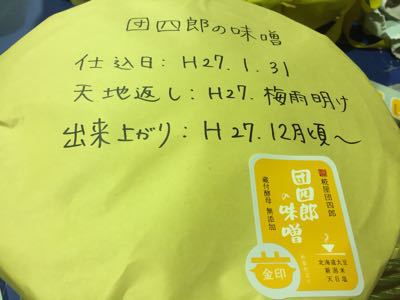 団四郎の味噌
仕込日：H27.1.31
天地返し：H27.梅雨明け
出来上がり：H27.12月頃～
糀屋団四郎
団四郎の味噌
蔵付酵母 無添加
金印
北海道大豆
新潟米
天日塩